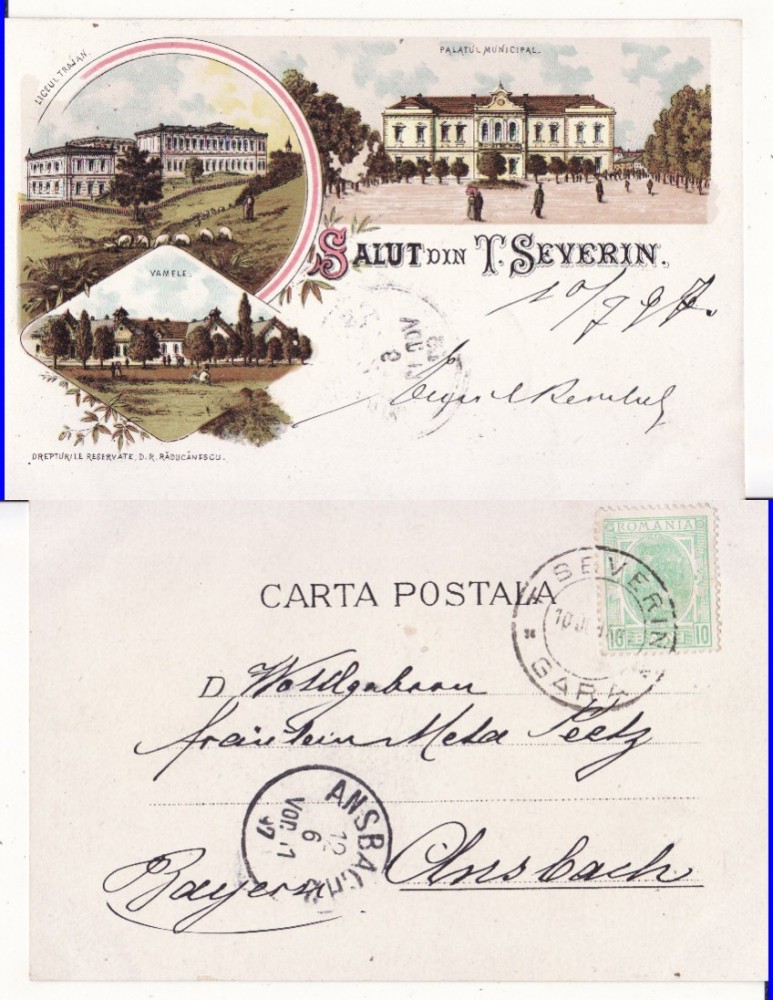 LICEUL TRAJAN.
PALATUL MUNICIPAL.
SALUT DIN T. SEVERIN.
VAMELE.
10/7 97.
DREPTURILE RESERVATE, D. R. RĂDUCĂNESCU.
ROMANIA
10
T. SEVERIN
GARA
CARTA POSTALA
D. Wohlgeboren
Fräulein Meta Seetz
ANSBACH
12
6
VOR. 11
97
Bayern Ansbach